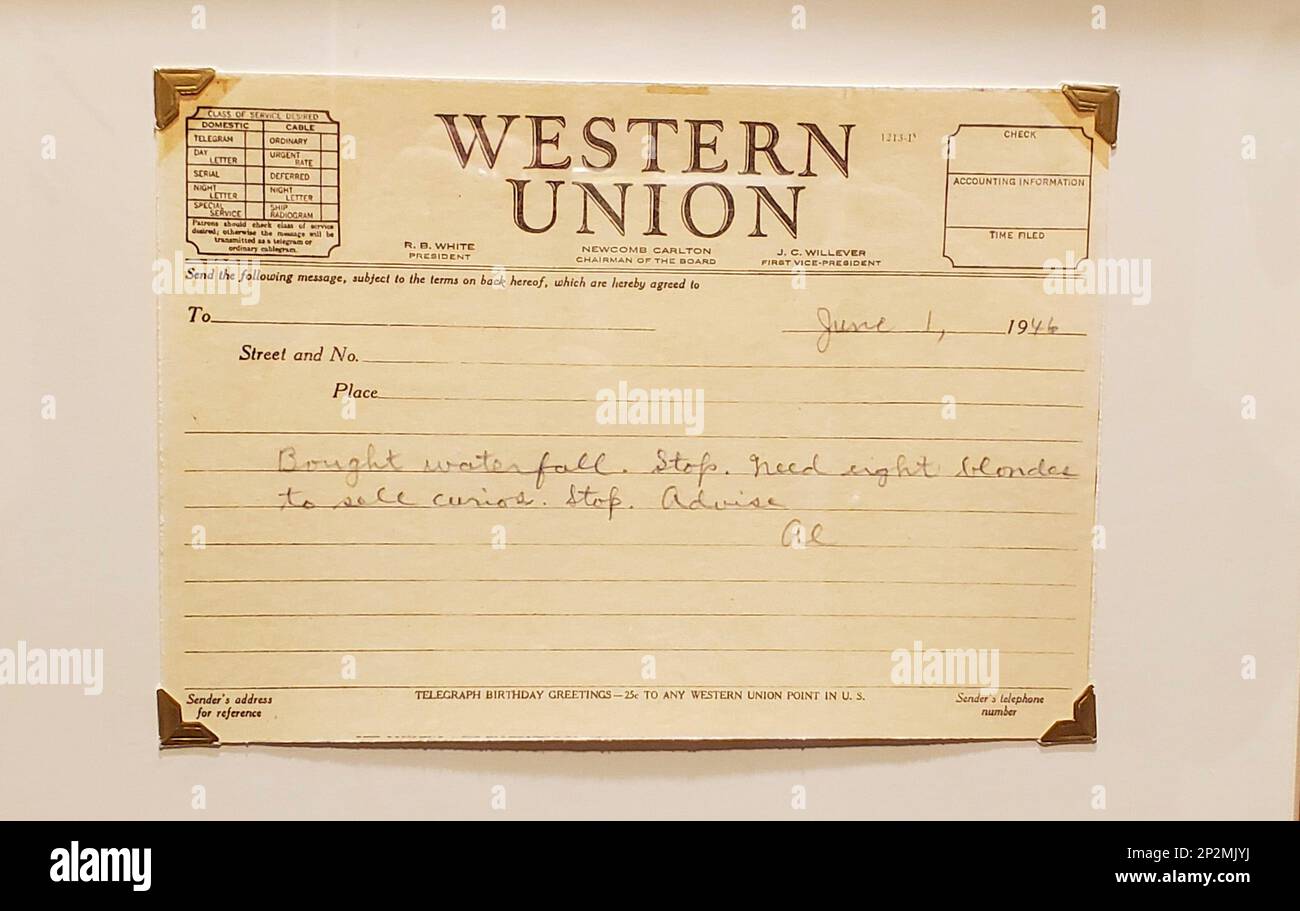 CLASS OF SERVICE DESIRED
DOMESTIC CABLE
TELEGRAM ORDINARY
DAY LETTER URGENT RATE
SERIAL DEFERRED
NIGHT LETTER NIGHT LETTER
SPECIAL SERVICE SHIP RADIOGRAM
Patrons should check class of service
desired; otherwise the message will be
transmitted as a telegram or
ordinary cablegram.
WESTERN
UNION
R. B. WHITE
PRESIDENT
NEWCOMB CARLTON
CHAIRMAN OF THE BOARD
J. C. WILLEVER
FIRST VICE-PRESIDENT
CHECK
ACCOUNTING INFORMATION
TIME FILED
Send the following message, subject to the terms on back hereof, which are hereby agreed to
To
June 1, 1946
Street and No.
Place
Bought waterfall. Stop. Need eight blondes
to sell curios. Stop. Advise
Al
Sender's address
for reference
TELEGRAPH BIRTHDAY GREETINGS—25c TO ANY WESTERN UNION POINT IN U. S.
Sender's telephone
number
alamy
a
alamy
Image ID: 2P2MJYJ
www.alamy.com